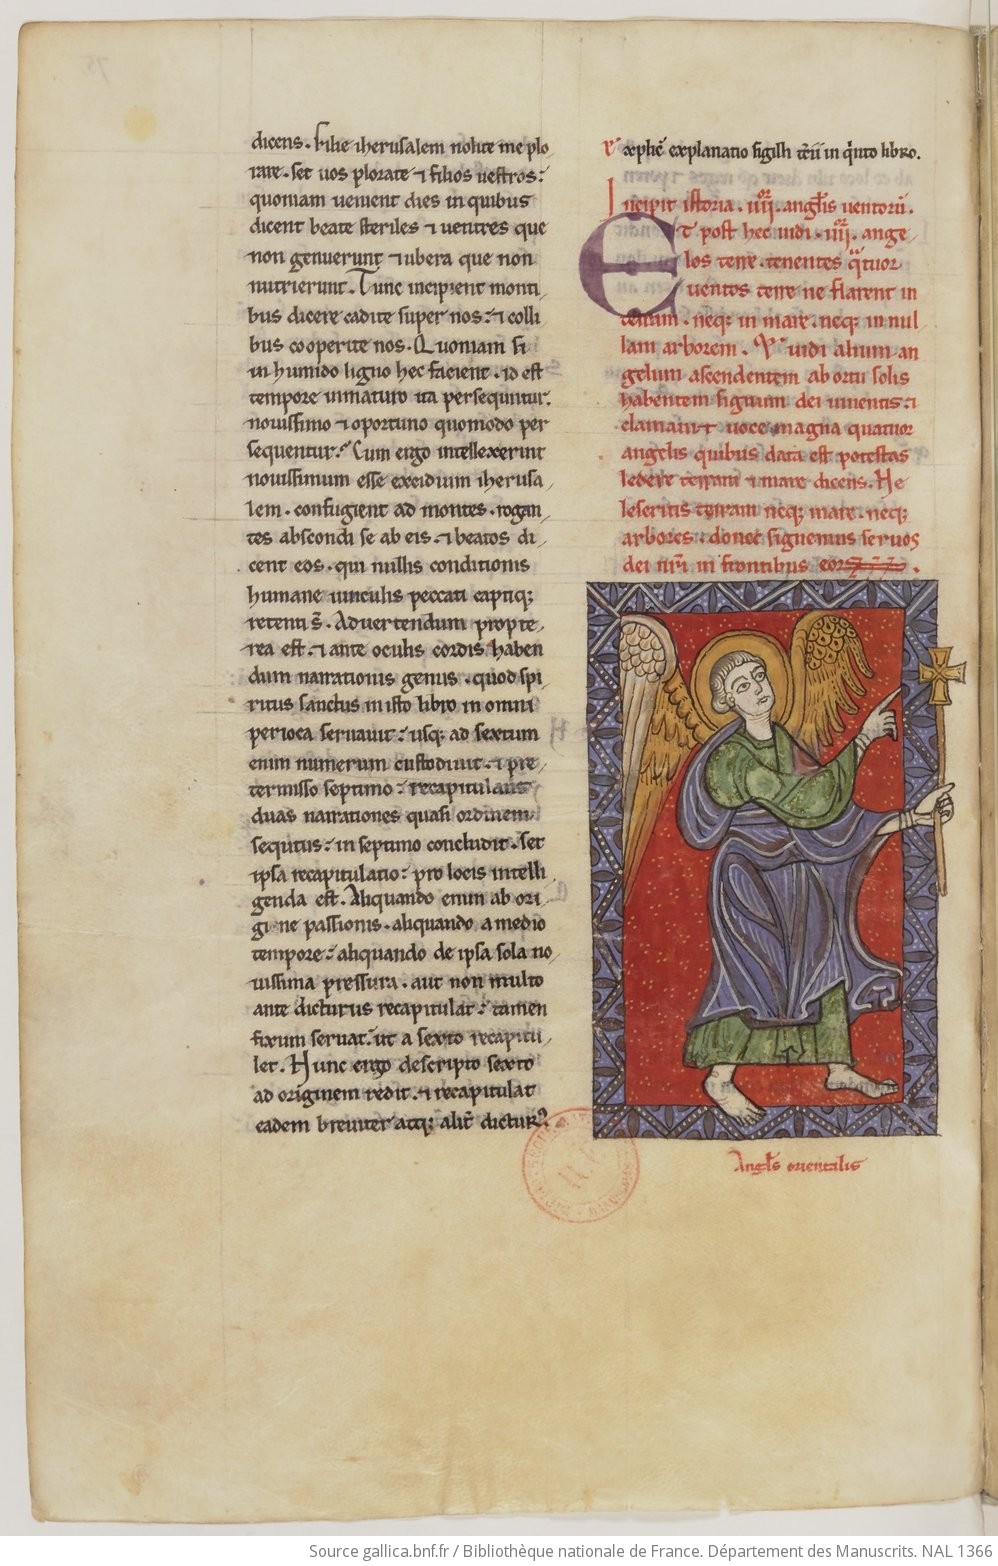 dicens. Filie iherusalem nolite me plo
rare. set uos plorate ⁊ filios uestros:
quoniam uenient dies in quibus
dicent beate steriles ⁊ uentres que
non genuerunt ⁊ ubera que non
nutrierunt. Tunc incipient monti,
bus dicere cadite super nos: ⁊ colli
bus cooperite nos. Quoniam si
in humido ligno hec facient. id est
tempore inmaturo ita persequntur.
nouissimo ⁊ oportuno quomodo per
sequentur: Cum ergo intellexerint
nouissimum esse excidium iherusa,
lem. confugient ad montes. rogan,
tes abscondi se ab eis. ⁊ beatos di,
cent eos. qui nullis conditionis
humane uinculis peccati captiq;
retenti s̄. Aduertendum propte,
rea est. ⁊ ante oculis cordis haben
dum narrationis genus. quod spi
ritus sanctus in isto libro in omni
perioca seruauit: usq; ad sextum
enim numerum custodiuit. ⁊ pre,
termisso septimo: recapitulans
duas narrationes quasi ordinem
sequtus: in septimo concludit. Set
ipsa recapitulatio: pro locis intelli
genda est. Aliquando enim ab ori,
gine passionis. aliquando a medio
tempore: aliquando de ipsa sola no,
uissima pressura. aut non multo
ante dicturus recapitulat: tamen
fixum seruat. ut a sexto recapitu,
let. Hunc ergo descripto sexto
ad originem redit. ⁊ recapitulat
eadem breuiter atq; alit̄ dictur᷒
explic̄ explanatio sigilli in q̄nto libro.
Incipit istoria. iiii. angl̄is uentorū.
Et post hec uidi. iiii. ange,
los terre. tenentes q̄tuor
uentos terre ne flarent in
terram. neq; in mare. neq; in nul
lam arborem. uidi alium an
gelum ascendentem ab ortu solis
habentem signum dei uiuentis. ⁊
clamauit uoce magna quatuor
angelis quibus data est potestas
ledere terram ⁊ mare dicens. Ne
leseritis terram neq; mare. neq;
arbores. donec signemus seruos
dei nr̄i in frontibus eor
Angl̄s orientalis
Source gallica.bnf.fr / Bibliothèque nationale de France. Département des Manuscrits. NAL 1366